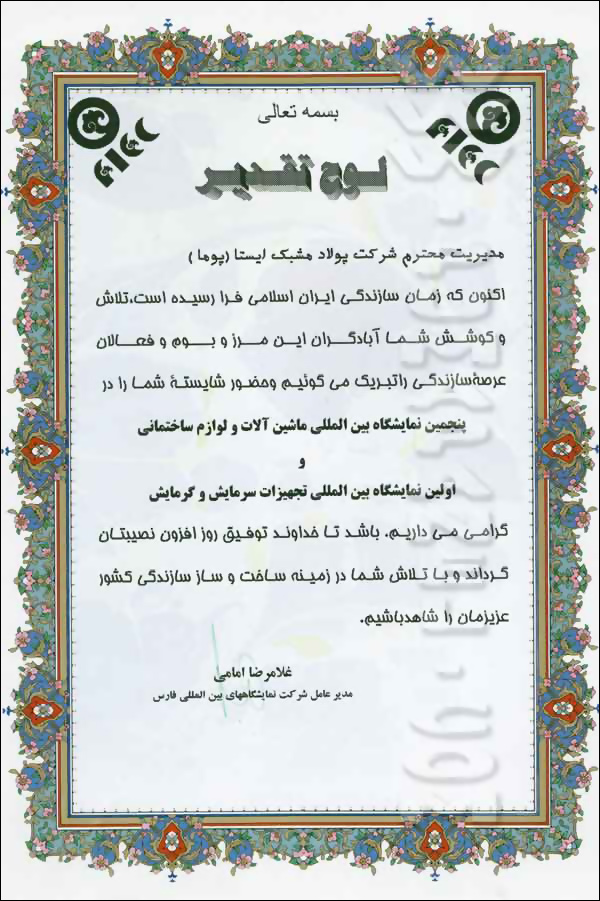 بسمه تعالی
لوح تقدیر
مدیریت محترم شرکت پولاد مشبک ایستا (پوما )
اکنون که زمان سازندگی ایران اسلامی فرا رسیده است،تلاش
و کوشش شما آبادگران این مرز و بوم و فعالان
عرصهٔسازندگی راتبریک می گوئیم وحضور شایستهٔ شما را در
پنجمین نمایشگاه بین المللی ماشین آلات و لوازم ساختمانی
و
اولین نمایشگاه بین المللی تجهیزات سرمایش و گرمایش
گرامی می داریم. باشد تا خداوند توفیق روز افزون نصیبتان
گرداند و با تلاش شما در زمینه ساخت و ساز سازندگی کشور
عزیزمان را شاهدباشیم.
غلامرضا امامی
مدیر عامل شرکت نمایشگاههای بین المللی فارس